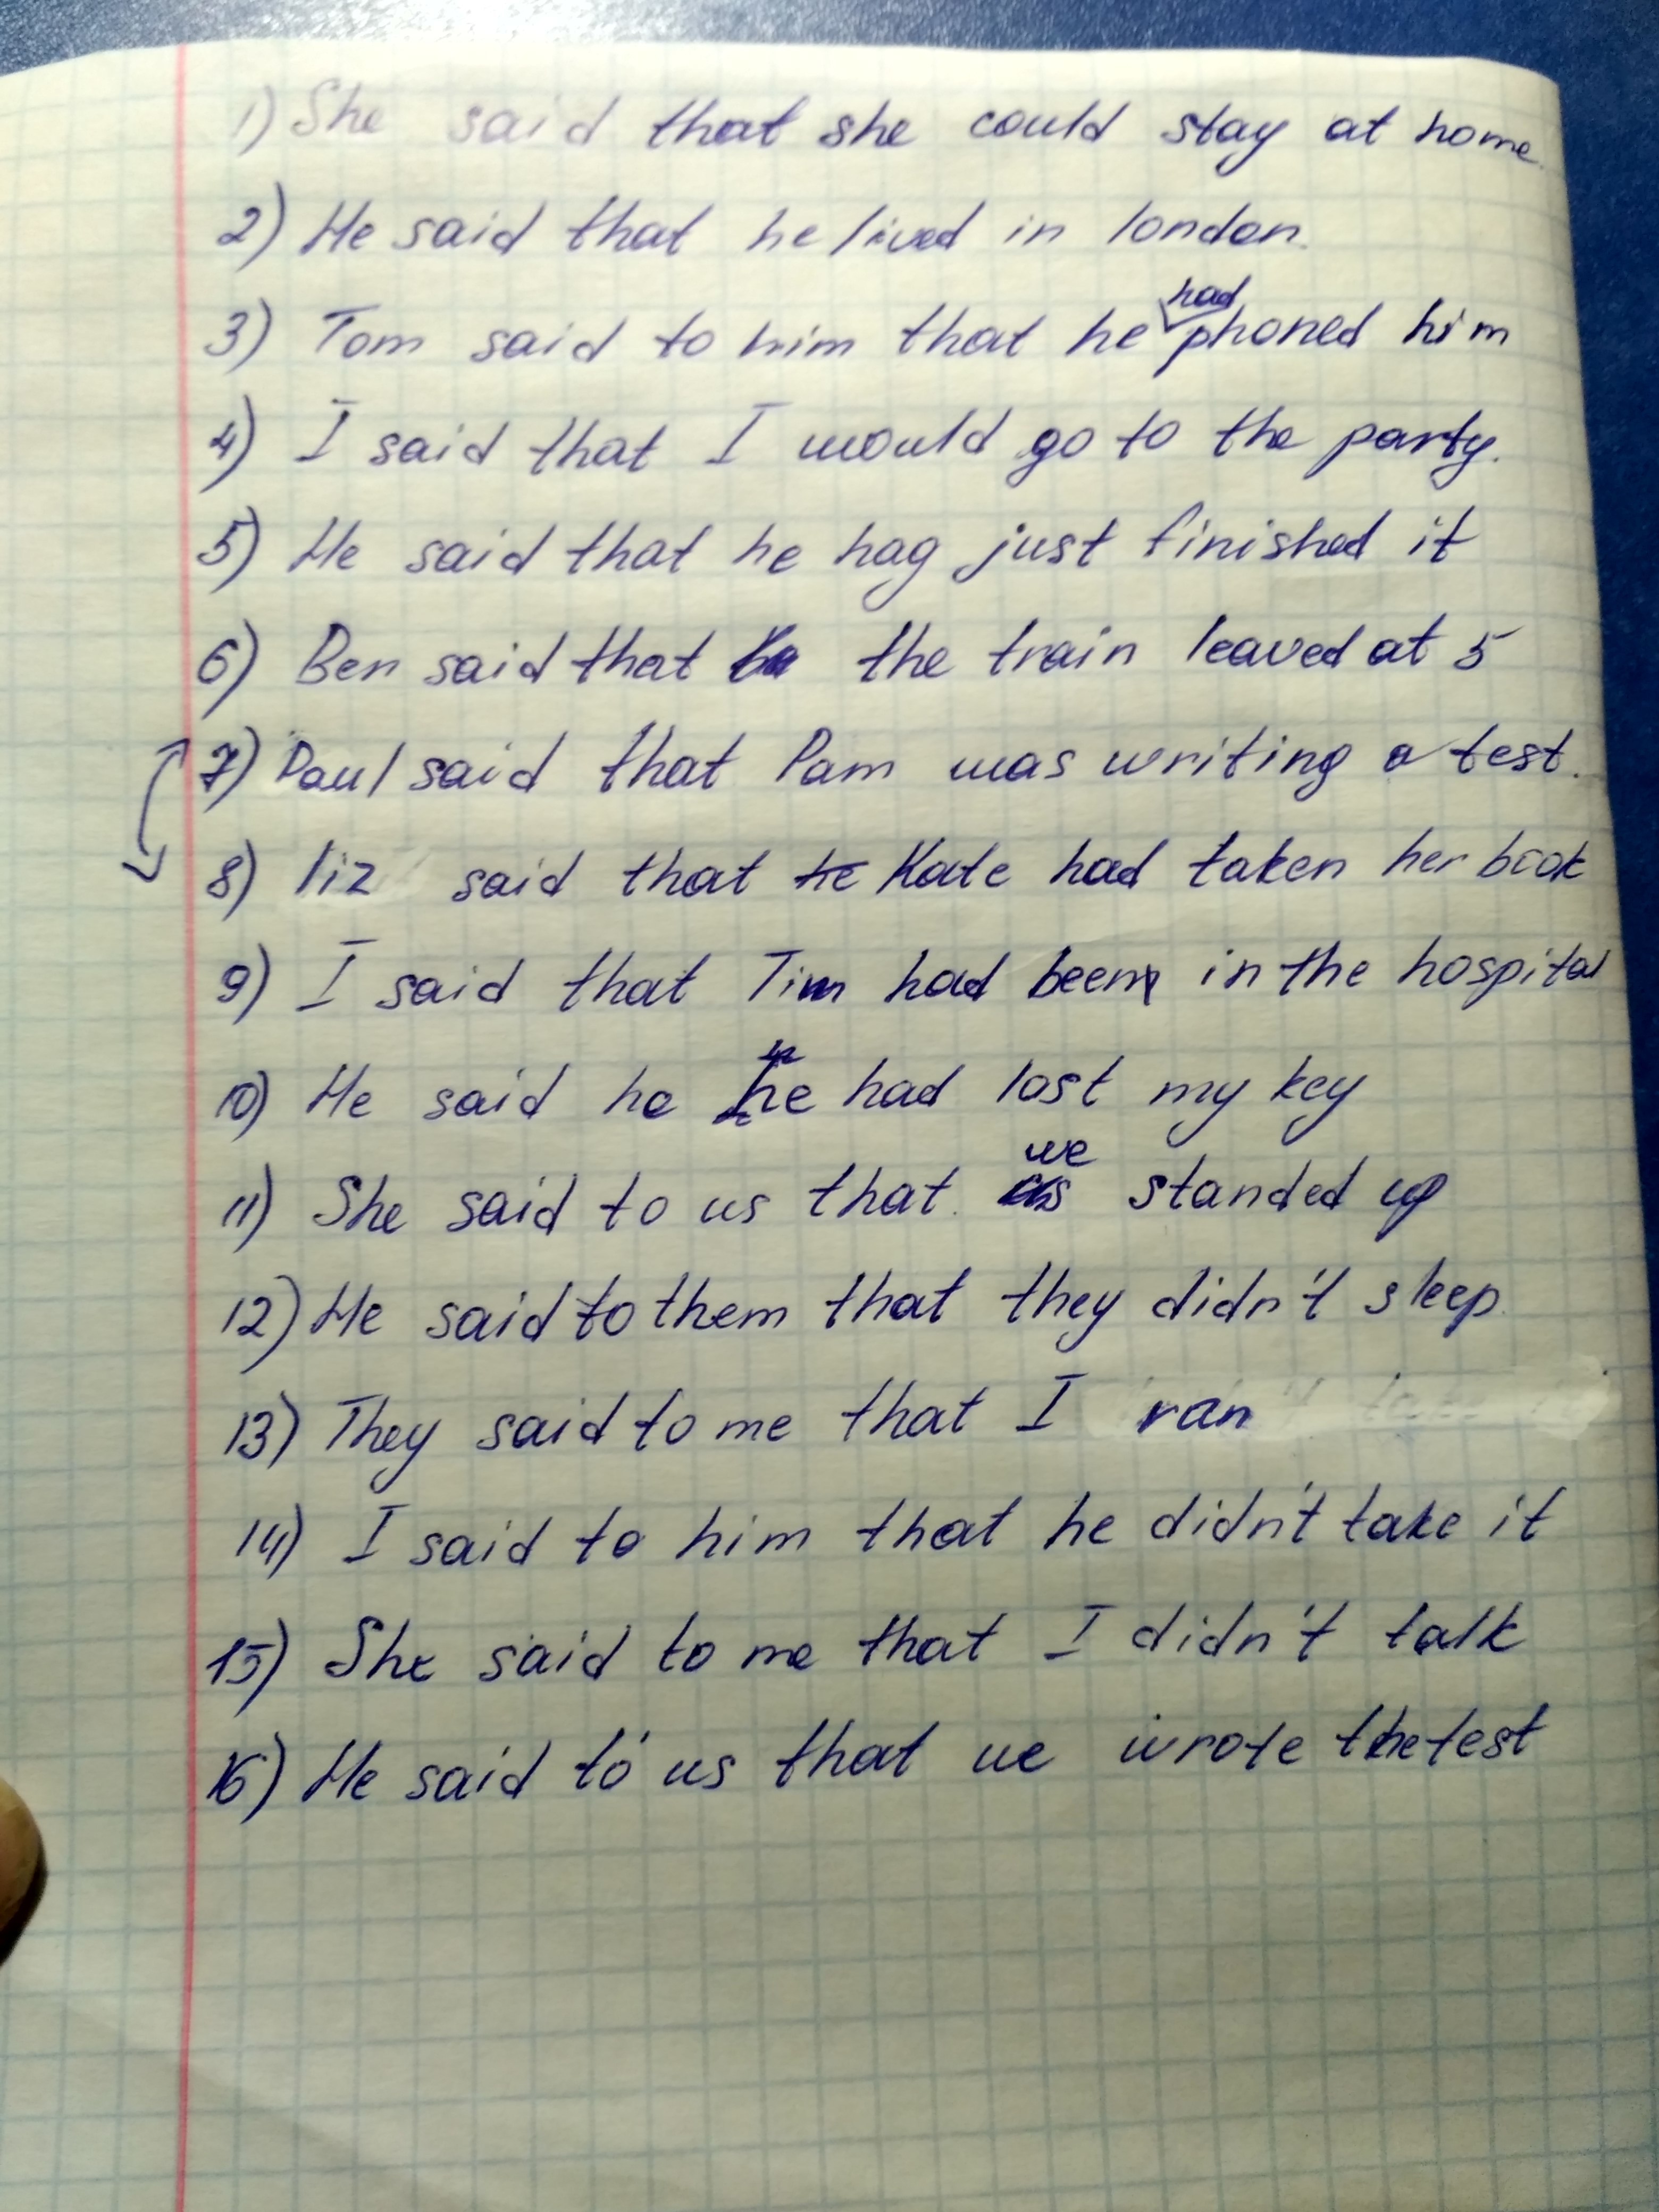 1) She said that she could stay at home.
2) He said that he lived in london.
3) Tom said to him that he had phoned him
4) I said that I would go to the party.
5) He said that he hag just finished it
6) Ben said that the train leaved at 5
7) Paul said that Pam was writing a test.
8) liz said that he Kate had taken her book
9) I said that Tim had been in the hospital
10) He said he he had lost my key
11) She said to us that we standed up
12) He said to them that they didn't sleep.
13) They said to me that I ran
14) I said to him that he didn't take it
15) She said to me that I didn't talk
16) He said to us that we wrote the test